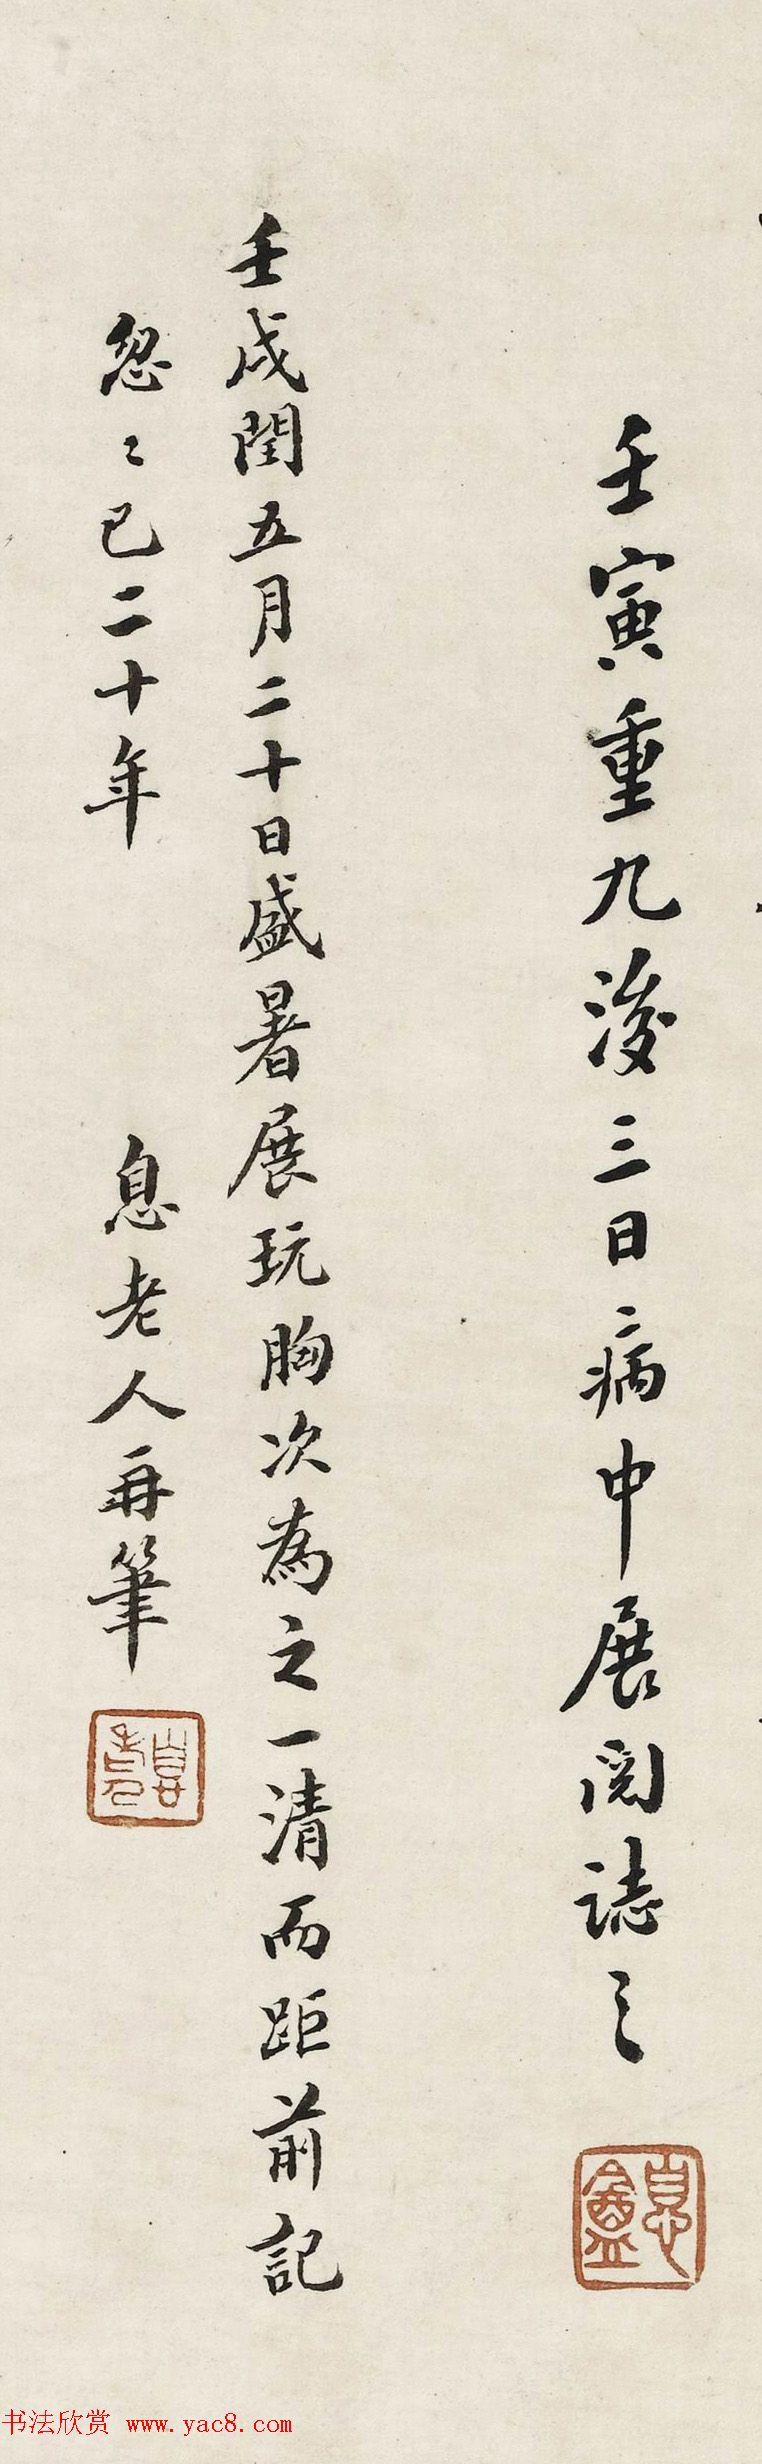 壬寅重九後三日病中展閱誌之
息盦
壬戌閏五月二十日盛暑展玩胸次為之一清而距前記
忽〻已二十年 息老人再筆
书法欣赏 www.yac8.com